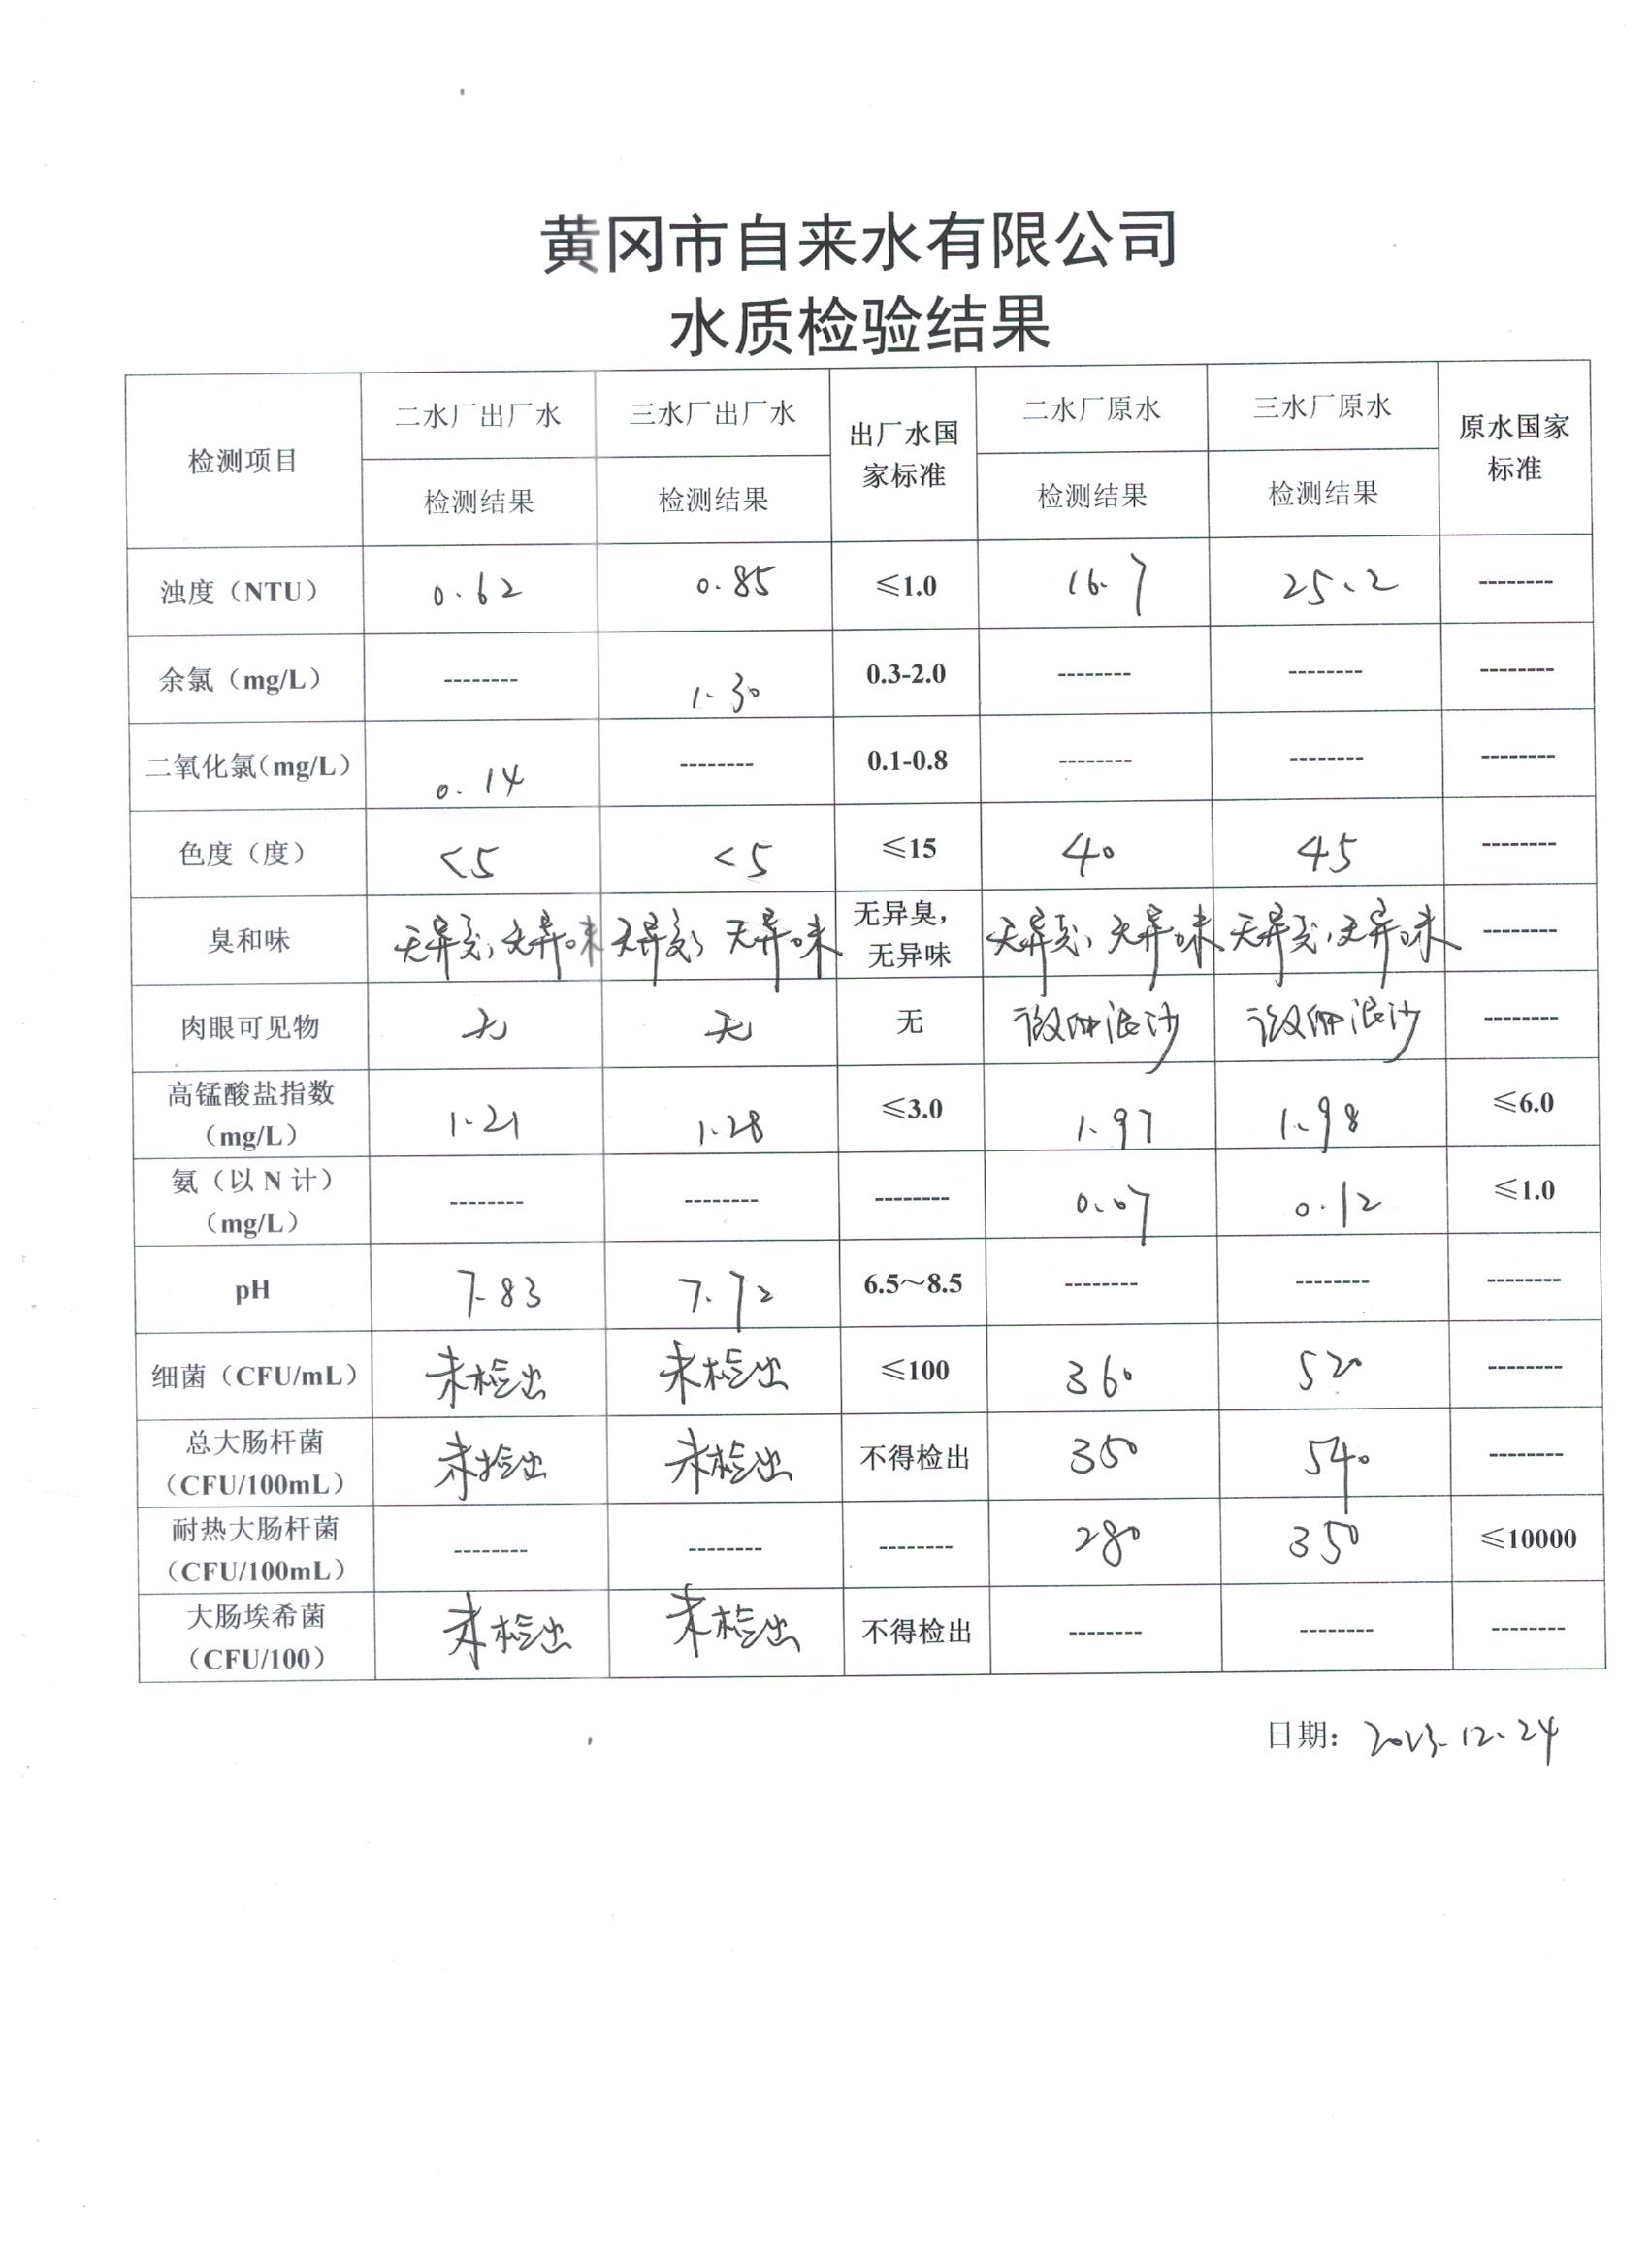 黄冈市自来水有限公司
水质检验结果
检测项目 二水厂出厂水 三水厂出厂水 出厂水国家标准 二水厂原水 三水厂原水 原水国家标准
检测结果 检测结果 检测结果 检测结果
浊度（NTU） 0.62 0.85 ≤1.0 16.7 25.2 --------
余氯（mg/L） -------- 1.30 0.3-2.0 -------- -------- --------
二氧化氯（mg/L） 0.14 -------- 0.1-0.8 -------- -------- --------
色度（度） <5 <5 ≤15 40 45 --------
臭和味 无异臭，无异味 无异臭，无异味 无异臭，无异味 无异臭，无异味 无异臭，无异味 --------
肉眼可见物 无 无 无 微细泥沙 微细泥沙 --------
高锰酸盐指数（mg/L） 1.21 1.28 ≤3.0 1.97 1.98 ≤6.0
氨（以 N 计）（mg/L） -------- -------- -------- 0.07 0.12 ≤1.0
pH 7.83 7.72 6.5～8.5 -------- -------- --------
细菌（CFU/mL） 未检出 未检出 ≤100 360 520 --------
总大肠杆菌（CFU/100mL） 未检出 未检出 不得检出 350 540 --------
耐热大肠杆菌（CFU/100mL） -------- -------- -------- 280 350 ≤10000
大肠埃希菌（CFU/100） 未检出 未检出 不得检出 -------- -------- --------
日期：2023.12.24